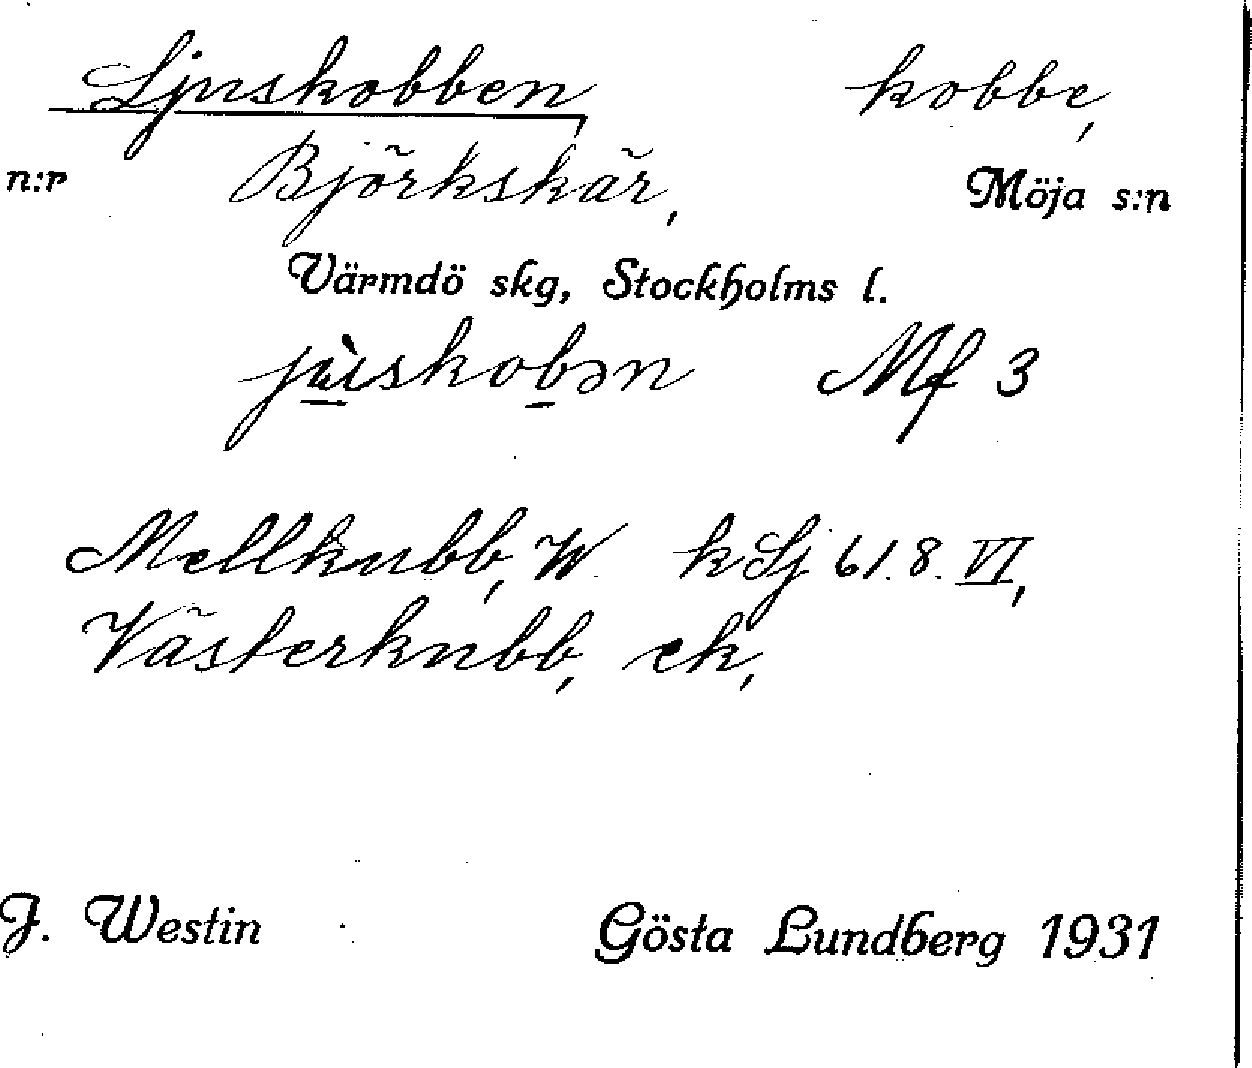 Ljuskobben, kobbe,
n:r Björkskär, Möja s:n
Värmdö skg, Stockholms l.
Mf 3
Mellkubb, W. kSj 61.8.VI,
Västerkubb, ek,
J. Westin Gösta Lundberg 1931